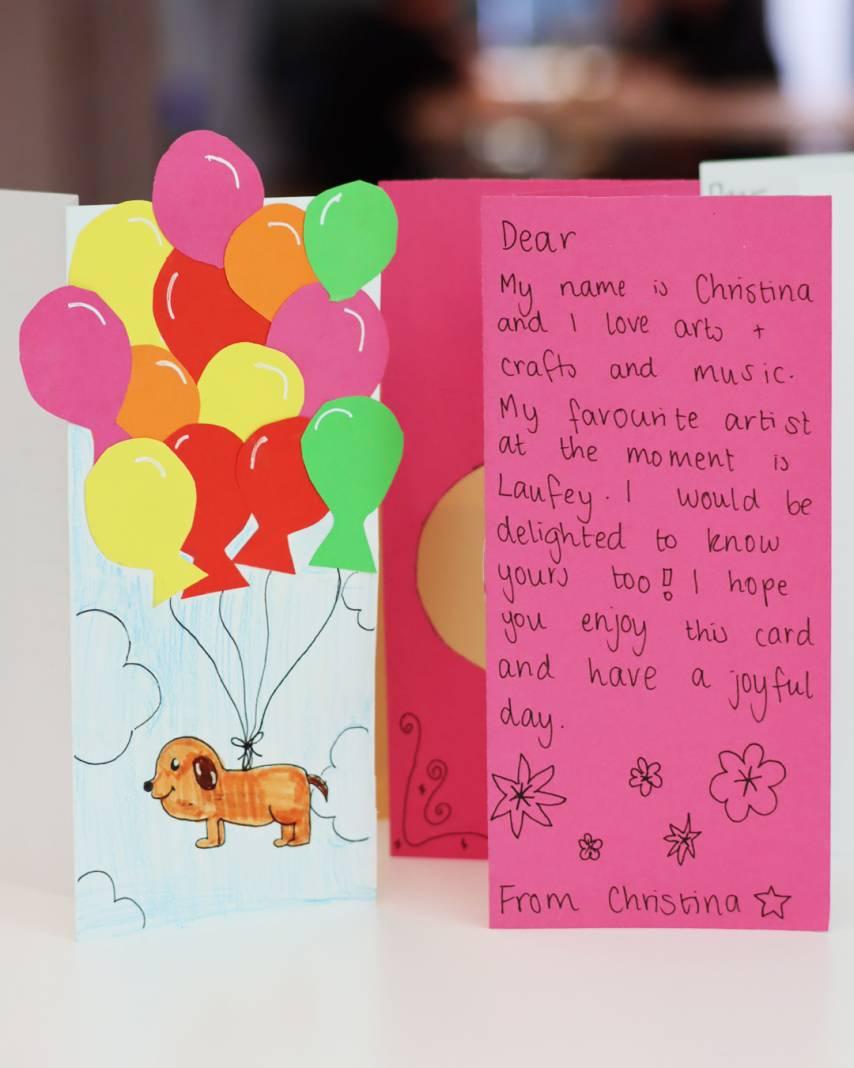 Dear
My name is Christina
and I love arts +
crafts and music.
My favourite artist
at the moment is
Laufey. I would be
delighted to know
yours too! I hope
you enjoy this card
and have a joyful
day.
From Christina